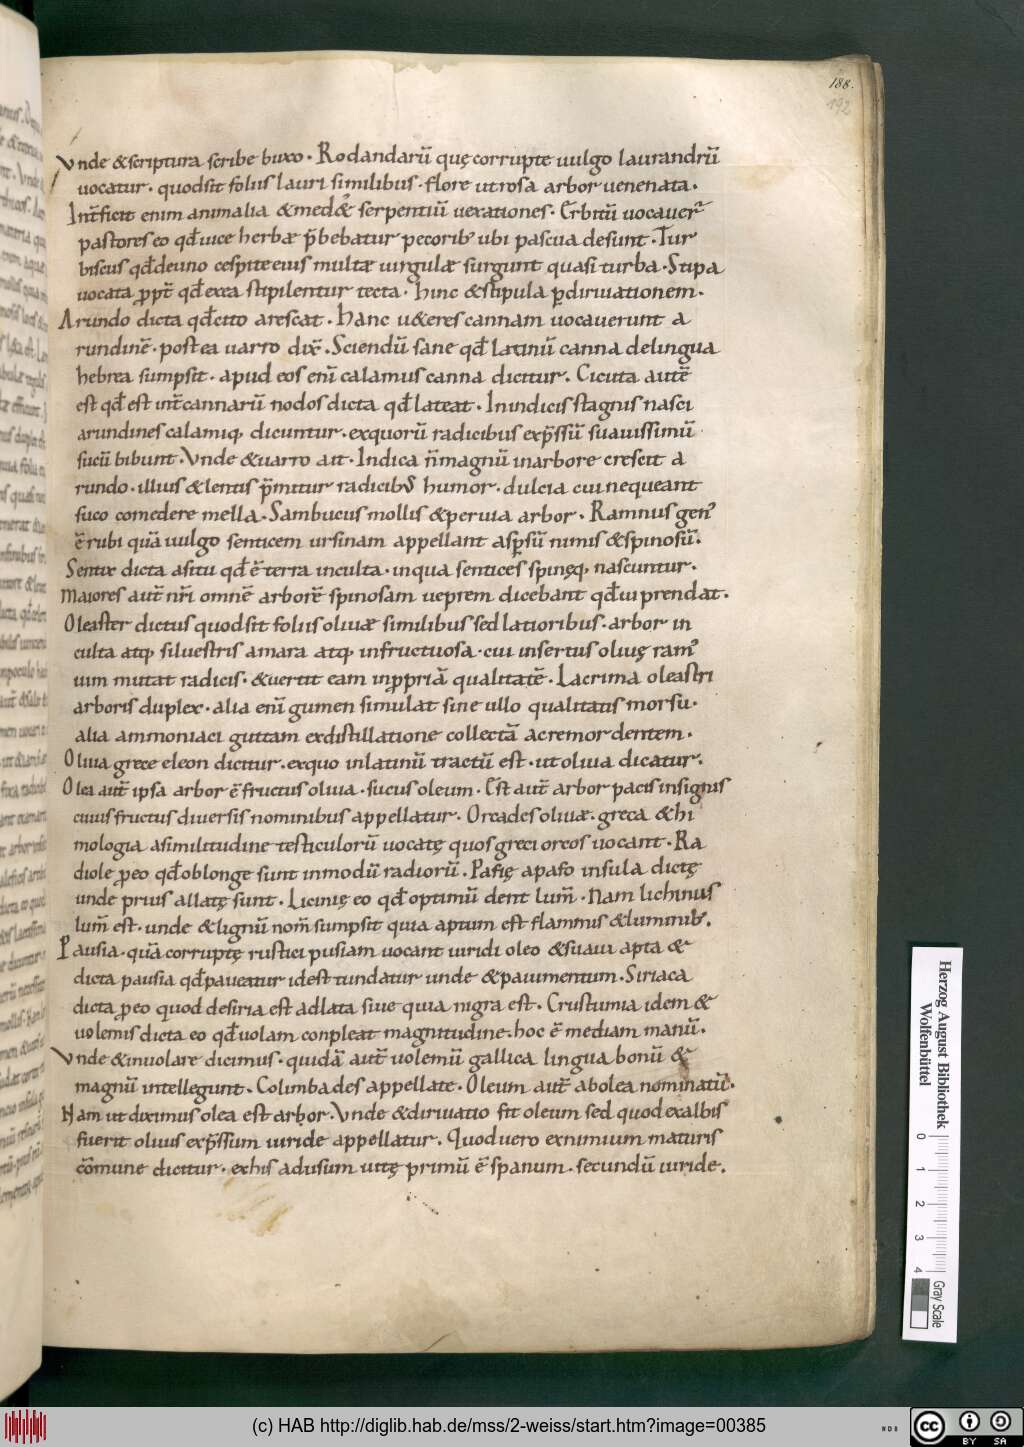 188.
192
Vnde &scriptura scribe buxo · Rodandarū quę corrupte uulgo laurandrū
uocatur · quodsit folus lauri similibus · flore utrosa arbor uenenata ·
Int̄ficit enim animalia &med& serpentiū uexationes · Erbitū uocauer̄
pastores eo qd̄ uice herbæ p̄bebatur pecorib; ubi pascua desunt · Tur
biscus qd̄ deuno cespite eius multæ uirgulæ surgunt quasi turba · Stipa
uocata ꝓpt̄ qd̄ exea stipilentur tecta · hinc &stipula ꝑdiriuationem ·
Arundo dicta qd̄ cito arescat · Hanc u&eres cannam uocauerunt a
rundinē · postea uarro dix̄ · Sciendū sane qd̄ latinū canna delingua
hebrea sumpsit · apud eos eni̅ calamus canna dicitur · Cicuta autē
est qd̄ est int̄ cannarū nodos dicta qd̄ lateat · In indicis stagnis nasci
arundines calamiq; dicuntur · exquorū radicibus exp̄ssū suauissimū
sucū bibunt · Vnde &uarro ait · Indica n̄ magnū inarbore crescit a
rundo · illius &lentis p̄mitur radicib; humor · dulcia cui nequeant
suco comedere mella · Sambucus mollis &peruia arbor · Ramnus gen᾽
ē rubi quā uulgo senticem ursinam appellant asꝑsū nimis &spinosū ·
Sentix dicta asitu qd̄ ē terra inculta · inqua sentices spinęq; nascuntur ·
Maiores aut̄ nr̄i omnē arborē spinosam ueprem dicebant qd̄ ui prendat ·
Oleaster dictus quod sit foliis oliuæ similibus sed latioribus · arbor in
culta atq; siluestris amara atq; infructuosa · cui insertus oliuę ram᾽
uim mutat radicis · &uertit eam inꝓpriā qualitatē · Lacrima oleastri
arboris duplex · alia eni̅ gumen simulat sine ullo qualitatis morsu ·
alia ammoniaci guttam exdistillatione collectā acremordentem ·
Oliua grece eleon dicitur · exquo inlatinū tractū est · ut oliua dicatur ·
Olea aut̄ ipsa arbor ē fructus oliua · sucus oleum · Est aut̄ arbor pacis insignis
cuius fructus diuersis nominibus appellatur · Orcades oliuæ · greca &hi
mologia asimilitudine testiculorū uocatę quos greci orcos uocant · Ra
diole ꝑeo qd̄ oblonge sunt inmodū radiorū · Pafię apafo insula dictę
unde prius allatę sunt · Licinię eo qd̄ optimū dent lum̄ · Nam lichinus
lum̄ est · unde &lignū nom̄ sumpsit quia aptum est flammis &luminib; ·
Pausia · quā corruptę rustici pusiam uocant uiridi oleo &suaui apta &
dicta pausia qd̄ paueatur idest tundatur unde &pauimentum · Siriaca
dicta ꝑeo quod desiria est adlata siue quia nigra est · Crustumia idem &
uolemis dicta eo qd̄ uolam conpleat magnitudine · hoc ē mediam manū ·
Vnde &inuolare dicimus · quidā aut̄ uolemū gallica lingua bonū &
magnū intellegunt · Colimbades appellate · Oleum aut̄ abolea nominatū ·
Nam ut diximus olea est arbor · Vnde &diriuatio fit oleum sed quod exalbis
fuerit oliuis exp̄ssum uiride appellatur · Quod uero exnimium maturis
cōmune dicitur · exhis adusum uitę primū ē spanum · secundū uiride ·
Herzog August Bibliothek
Wolfenbüttel
0 1 2 3 4
Gray Scale
(c) HAB http://diglib.hab.de/mss/2-weiss/start.htm?image=00385
WDB
cc BY SA